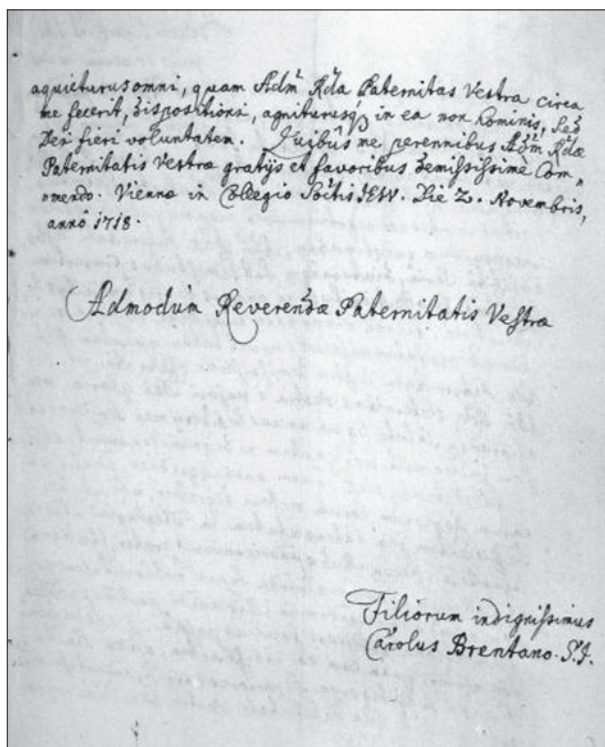 aquieturus omni, quam Adm. Rda Paternitas Vestra circa
me fecerit, dispositioni, agniturusq; in ea non hominis, sed
Dei fieri voluntatem. Quibus me perennibus Adm. Rdæ
Paternitatis Vestræ gratijs et favoribus demississimè Com„
mendo. Viennæ in Collegio Soctis JESU. Die 2. Novembris,
annô 1718.
Admodum Reverendæ Paternitatis Vestræ
Filiorum indignissimus
Carolus Brentano. S.J.